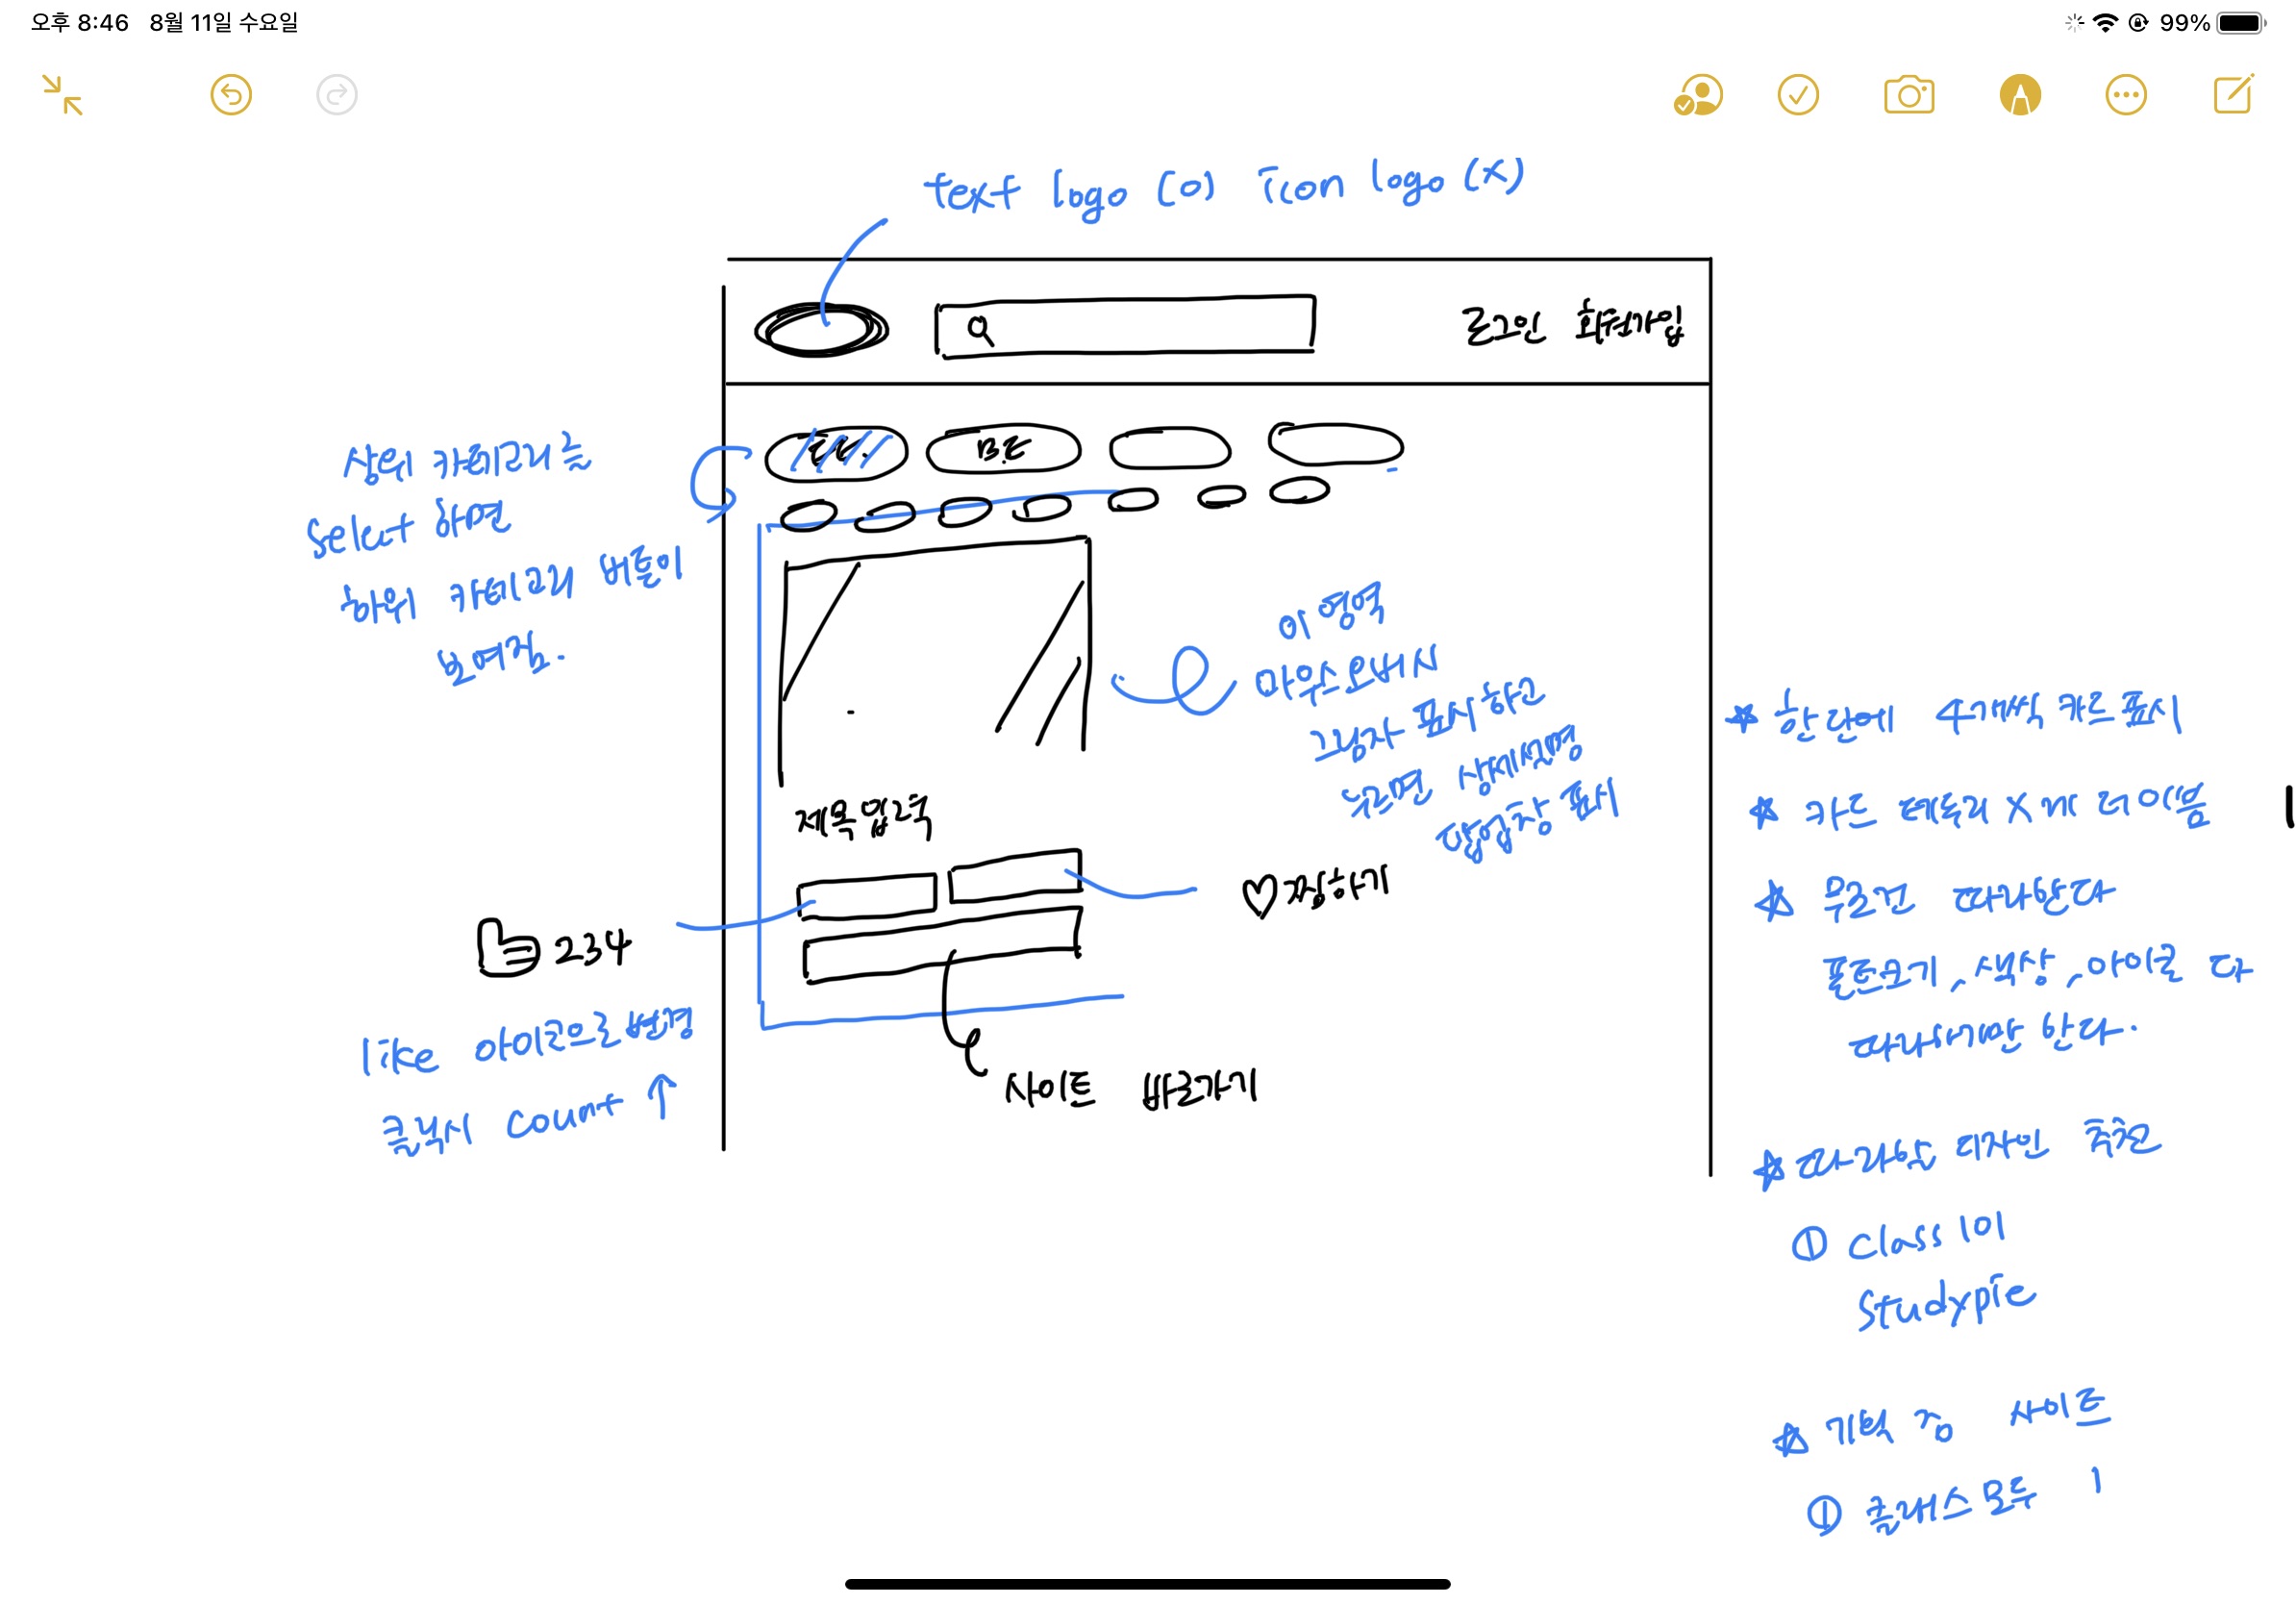 오후 8:46 8월 11일 수요일
99%
text logo (o) icon logo (x)
로그인 회원가입
B.E
상위 카테고리는
select 하면
하위 카테고리 버튼이
보여짐.
이 영역
마우스오버시
그림자 표시하고
누르면 상세설명
팝업창 표시
제목입력
♡찜하기
234
like 아이콘으로 변경
클릭시 count ↑
사이트 바로가기
☆ 한 단에 4개씩 카드 표시
☆ 카드 테두리 X
☆ 무조건 따라한다
폰트크기, 색상, 아이콘 다
따라해야만 한다.
☆ 따라할 디자인 추천
① Class 101
Studypie
☆ 기획 중 사이트
① 클래스 모두